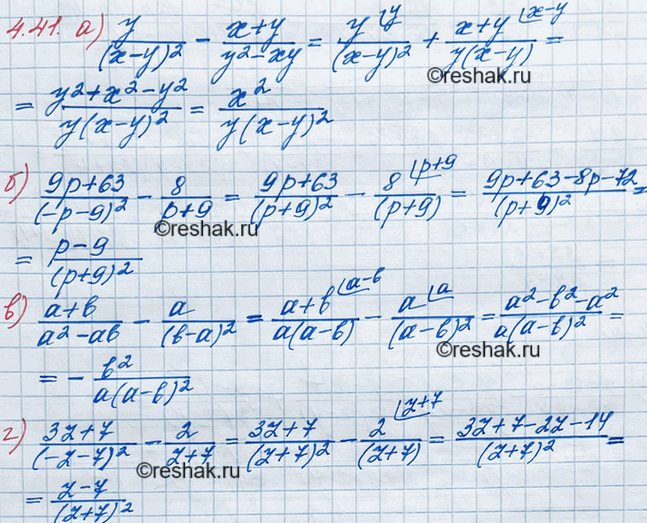 4.41. а) y/(x-y)² - (x+y)/(y²-xy) = y⌊y/(x-y)² + (x+y)⌊x-y/y(x-y) =
©reshak.ru
= (y²+x²-y²)/y(x-y)² = x²/y(x-y)²
б) (9p+63)/(-p-9)² - 8/(p+9) = (9p+63)/(p+9)² - 8⌊p+9/(p+9) = (9p+63-8p-72)/(p+9)² =
©reshak.ru
= (p-9)/(p+9)²
в) (a+b)/(a²-ab) - a/(b-a)² = (a+b)⌊a-b/a(a-b) - a⌊a/(a-b)² = (a²-b²-a²)/a(a-b)² =
©reshak.ru
= - b²/a(a-b)²
г) (3z+7)/(-z-7)² - 2/(z+7) = (3z+7)/(z+7)² - 2⌊z+7/(z+7) = (3z+7-2z-14)/(z+7)² =
©reshak.ru
= (z-7)/(z+7)²